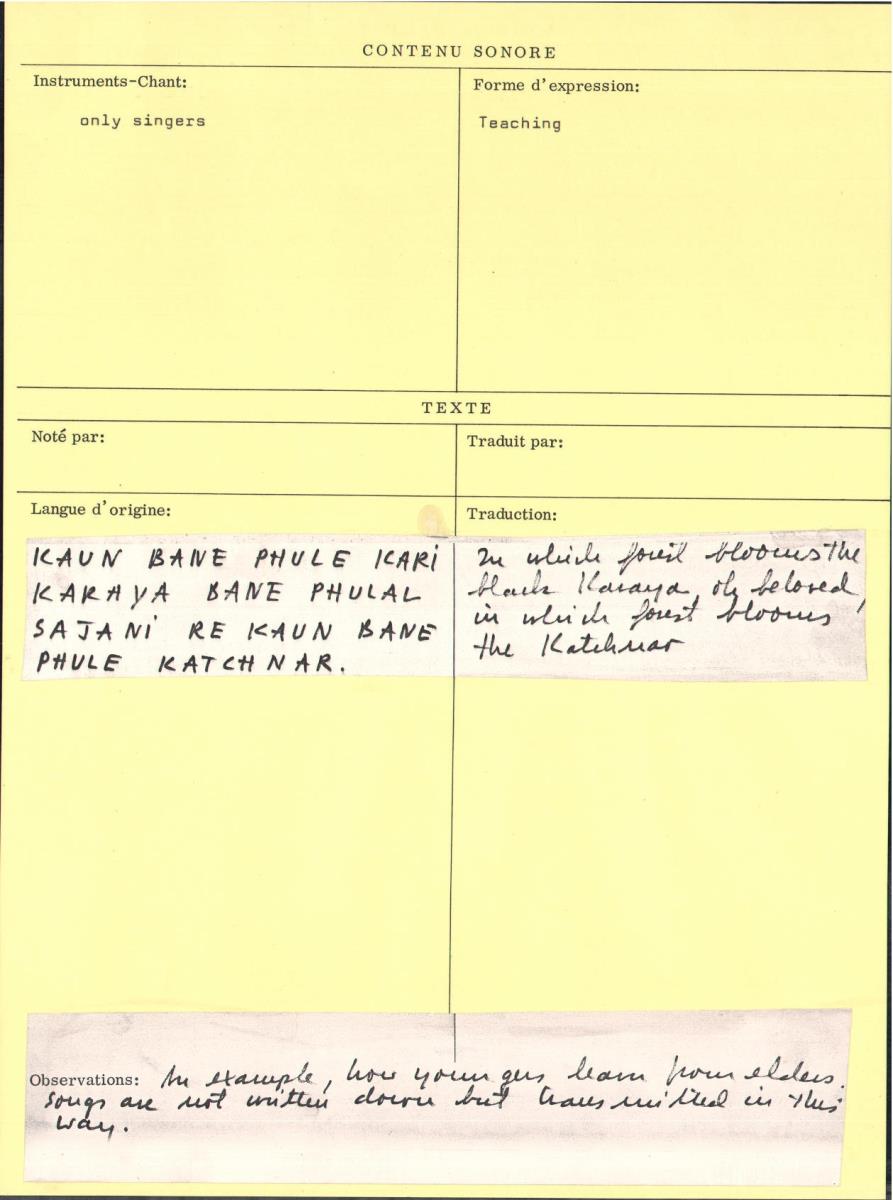 CONTENU SONORE
Instruments-Chant:
only singers
Forme d'expression:
Teaching
TEXTE
Noté par:
Traduit par:
Langue d'origine:
KAUN BANE PHULE KARI
KARAYA BANE PHULAL
SAJANI RE KAUN BANE
PHULE KATCHNAR.
Traduction:
In which forest blooms the
black Karaya, oh beloved,
in which forest blooms
the Katchnar
Observations: An example, how youngers learn from elders.
Songs are not written down but transmitted in this
way.